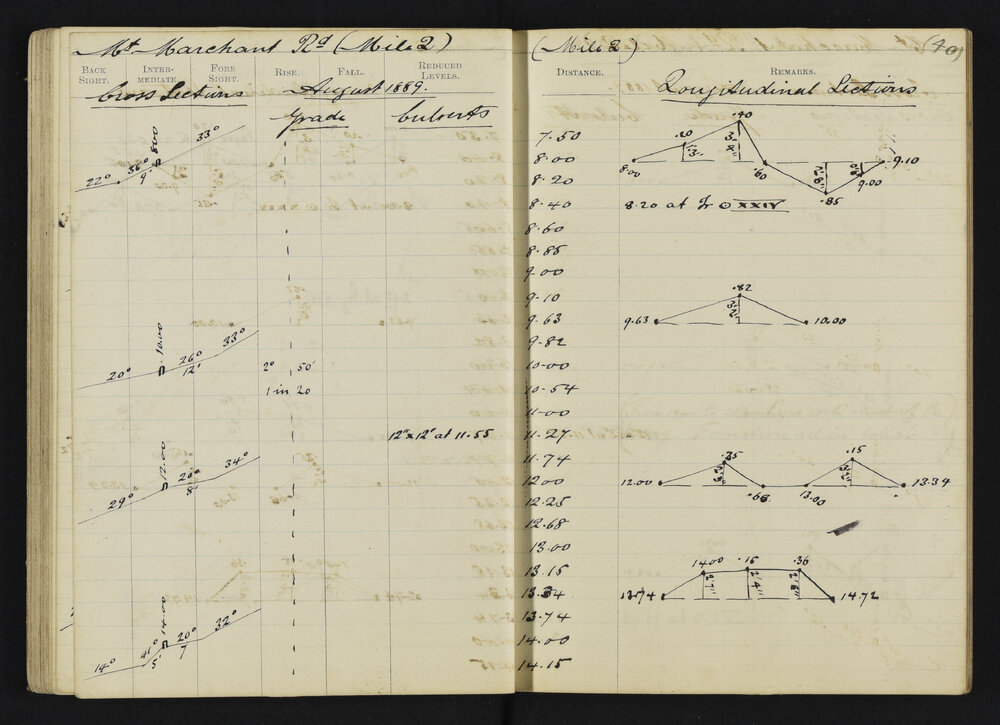 Mt Marchant Rd (Mile 2)
BACK SIGHT. INTER-MEDIATE FORE SIGHT. RISE. FALL. REDUCED LEVELS.
Cross Sections August 1889.
Grade Culverts
22° 36° 9' 8.00 33°
20° 10.00 26° 12' 33°
2° 50'
1 in 20
12"x12' at 11.55
29° 12.00 20° 8' 34°
14° 41° 5' 14.00 20° 7 32°
(Mile 2) (40)
DISTANCE. REMARKS.
Longitudinal Sections
7.50
8.00
8.20
8.40
8.60
8.85
9.00
9.10
9.63
9.82
10.00
10.54
11.00
11.27
11.74
12.00
12.25
12.68
13.00
13.15
13.34
13.74
14.00
14.15
8.00 .20 1'3" .40 3'4" .60 2'8" .85 9.00 9.10
8.20 at Tr ⊙ XXIV
9.63 .82 3'2" 10.00
12.00 .25 .68 13.00 .15 13.34
13.74 14.00 2'7" .15 2'4" .36 14.72